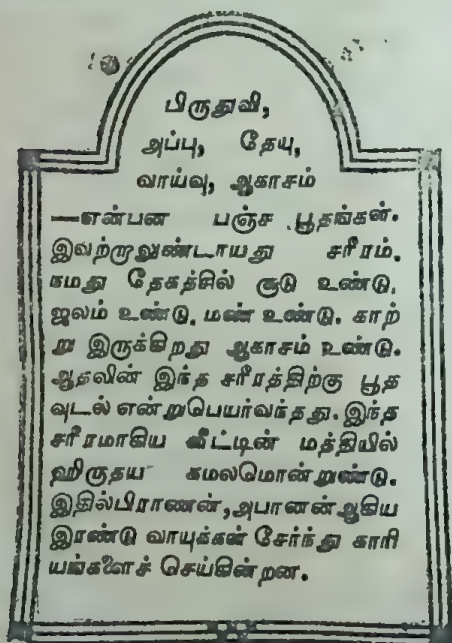 பிருதுவி,
அப்பு, தேயு,
வாய்வு, ஆகாசம்
—என்பன பஞ்ச பூதங்கள்.
இவற்றாலுண்டாயது சரீரம்.
நமது தேகத்தில் சூடு உண்டு.
ஜலம் உண்டு. மண் உண்டு. காற்
று இருக்கிறது ஆகாசம் உண்டு.
ஆதலின் இந்த சரீரத்திற்கு பூத
வுடல் என்றுபெயர்வந்தது. இந்த
சரீரமாகிய வீட்டின் மத்தியில்
ஹிருதய கமலமொன்றுண்டு.
இதில்பிராணன்,அபானன்ஆகிய
இரண்டு வாயுக்கள் சேர்ந்து காரி
யங்களைச் செய்கின்றன.